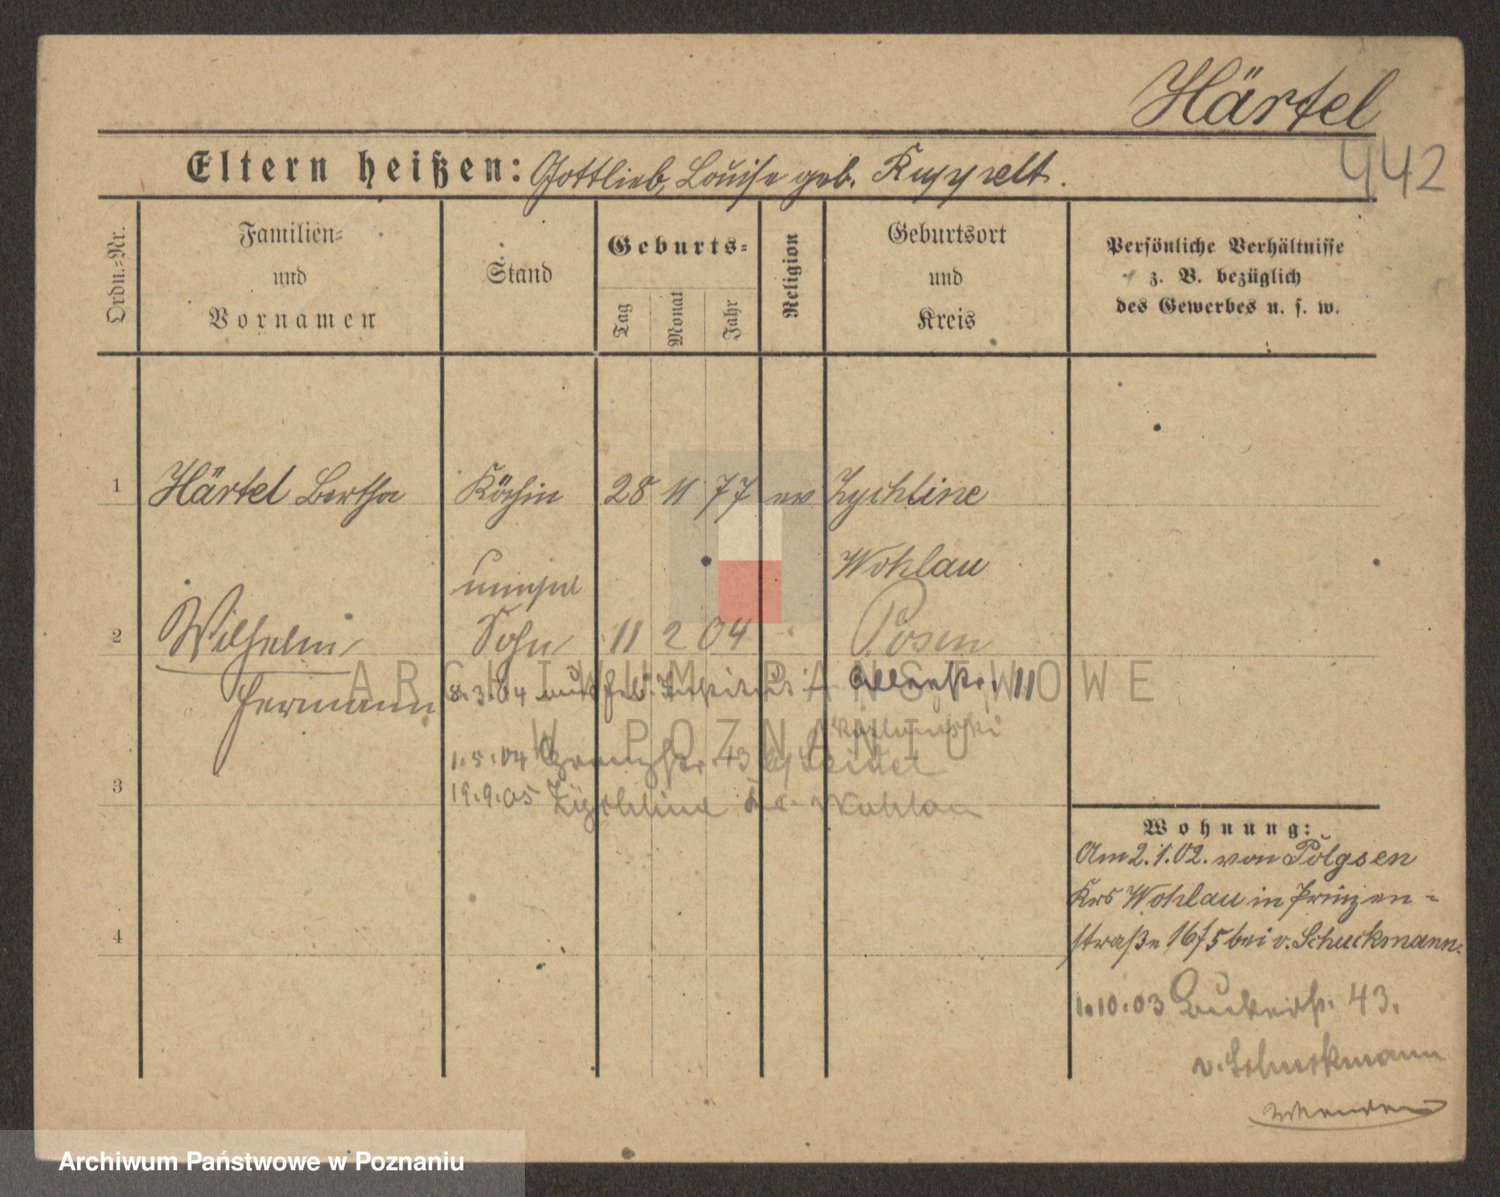 Härtel
442
Eltern heißen: Gottlieb, Louise geb. Ruppelt.
Ordn.-Nr.
Familien- und Vornamen
Stand
Geburts-
Tag
Monat
Jahr
Religion
Geburtsort und Kreis
Persönliche Verhältnisse
z. B. bezüglich
des Gewerbes u. s. w.
1 Härtel Bertha Köchin 28 11 77 ev Zychline
Wohlau
2 Wilhelm Sohn 11 2 04 Posen
Hermann
8.3.04 11
1.5.04 Grenzstr. 13
3
19.9.05 Zychline Kr. Wohlau
Wohnung:
Am 2.1.02. von Polgsen
Krs Wohlau in Prinzen-
straße 16/5 bei v. Schuckmann.
4
1.10.03 Bukerstr. 43.
v. Schuckmann
wenden
ARCHIWUM PAŃSTWOWE
W POZNANIU
Archiwum Państwowe w Poznaniu